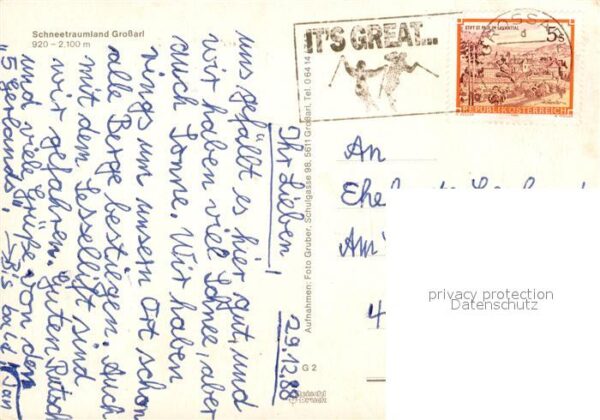 Schneetraumland Großarl
920 – 2.100 m
29.12.88
Ihr Lieben!
uns gefällt es hier gut, und
wir haben viel Schnee, aber
auch Sonne. Wir haben
rings um unsern Ort schon
alle Berge bestiegen. Auch
mit dem Sessellift sind
wir gefahren. Guten Rutsch
und viele Grüße von den
"5 
Bis bald, Jan
Aufnahmen: Foto Gruber, Schulgasse 98, 5611 Großarl, Tel. 0 64 14
G 2
Druck
IT'S GREAT...
STIFT ST. PAUL IM LAVANTTAL
5 S
REPUBLIK ÖSTERREICH
An
Am
4
privacy protection
Datenschutz